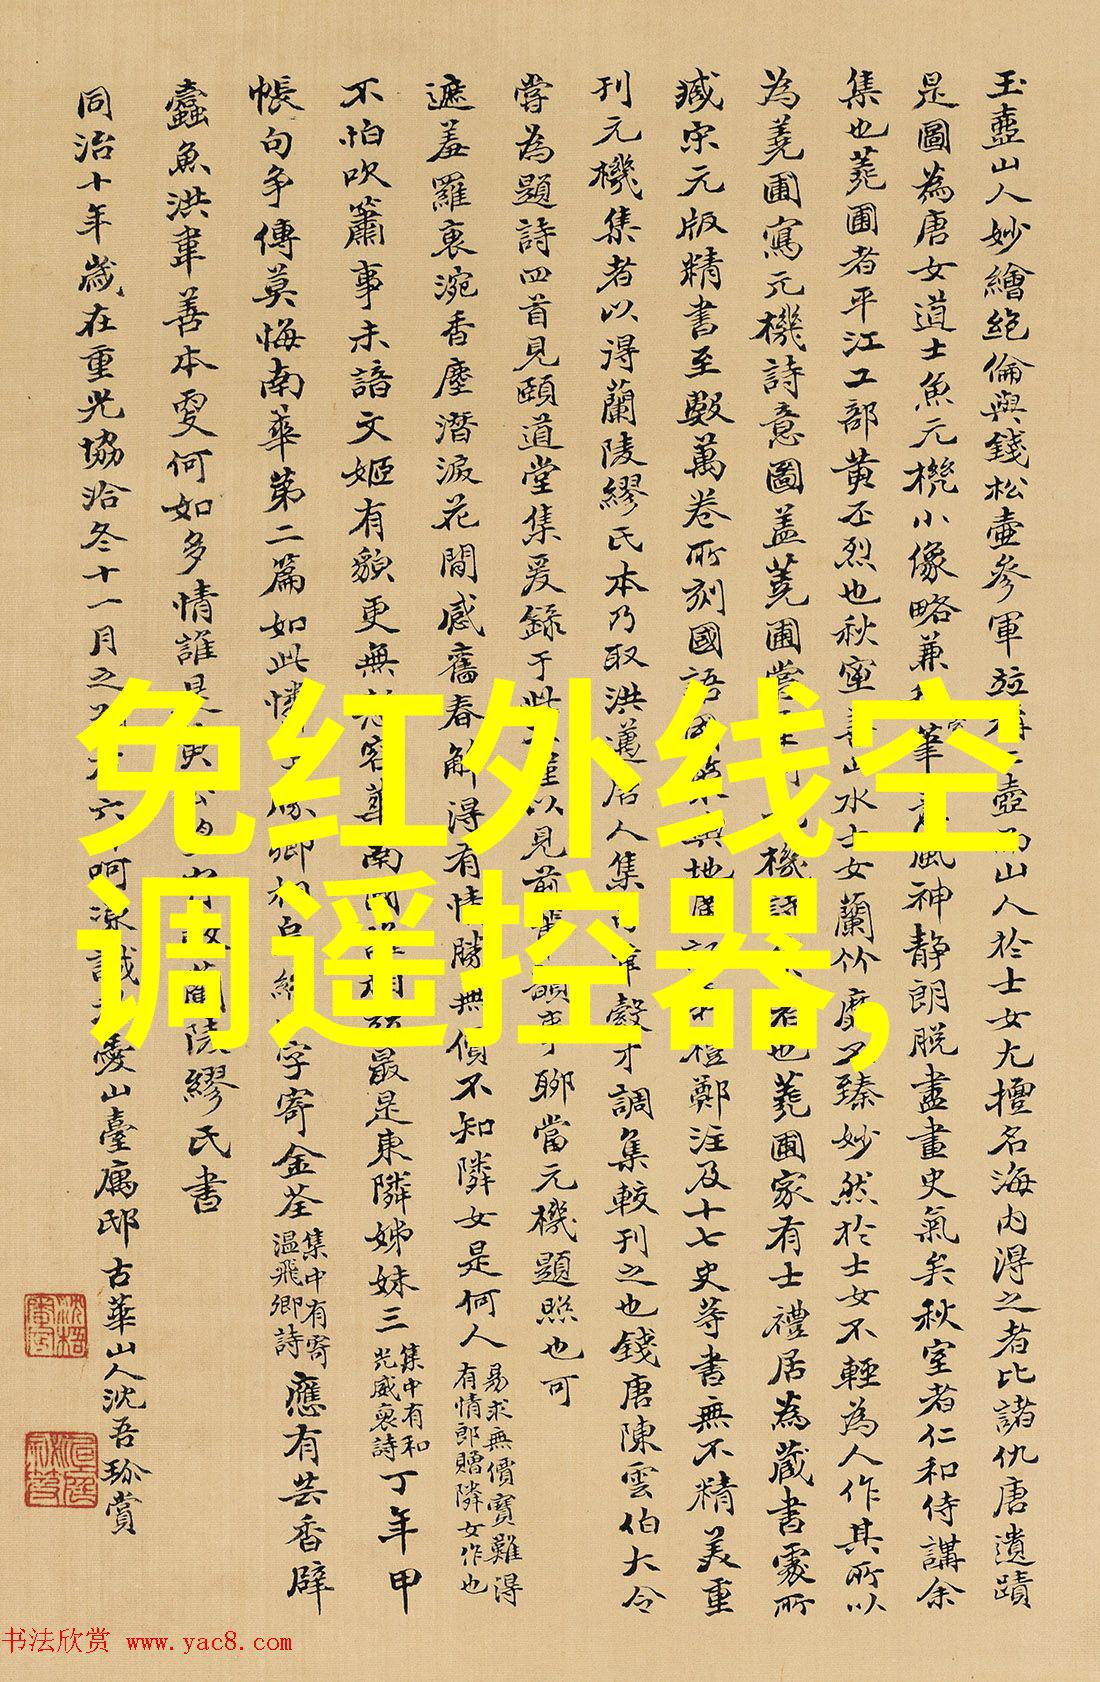 玉壺山人妙繪絕倫與錢松壺參軍竝稱二壺而山人於士女尤擅名海内得之者比諸仇唐遺蹟
是圖為唐女道士魚元機小像略兼筆意風神靜朗脫盡畫史氣矣秋室者仁和侍講余
集也蕘圃者平江工部黃丕烈也秋室善山水士女蘭竹靡不臻妙然於士女不輕為人作其所以
為蕘圃寫元機詩意圖蓋蕘圃嘗機者也蕘圃家有士禮居為藏書處所
臧宋元版精書至數萬卷所刻國語國策與地禮鄭注及十七史等書無不精美重
刊元機集者以得蘭陵繆氏本乃取洪邁人集才調集較刊之也錢唐陳雲伯大令
嘗為題詩四首見頤道堂集爰錄于此以見前輩韻事聊當元機題照也可
遮羞羅裛涴香塵潛淚花間感舊春解得有情勝無價不知隣女是何人
易求無價寶難得
有情郎贈隣女作也
不怕吹簫事未諳文姬有貌更無容華南國最是東隣姊妹三
集中有和
光威裒詩
丁年甲
帳句爭傳莫悔南華第二篇如此憐勝卿相字寄金荃
集中有寄
温飛卿詩
應有芸香辟
蠹魚洪韋善本更何如多情誰是黃蘭陵繆氏書
同治十年歲在重光協洽冬十一月之六呵凍識愛山臺廡邸古華山人沈吾玠賞
免红外线空
调遥控器,
书法欣赏 www.yac8.com